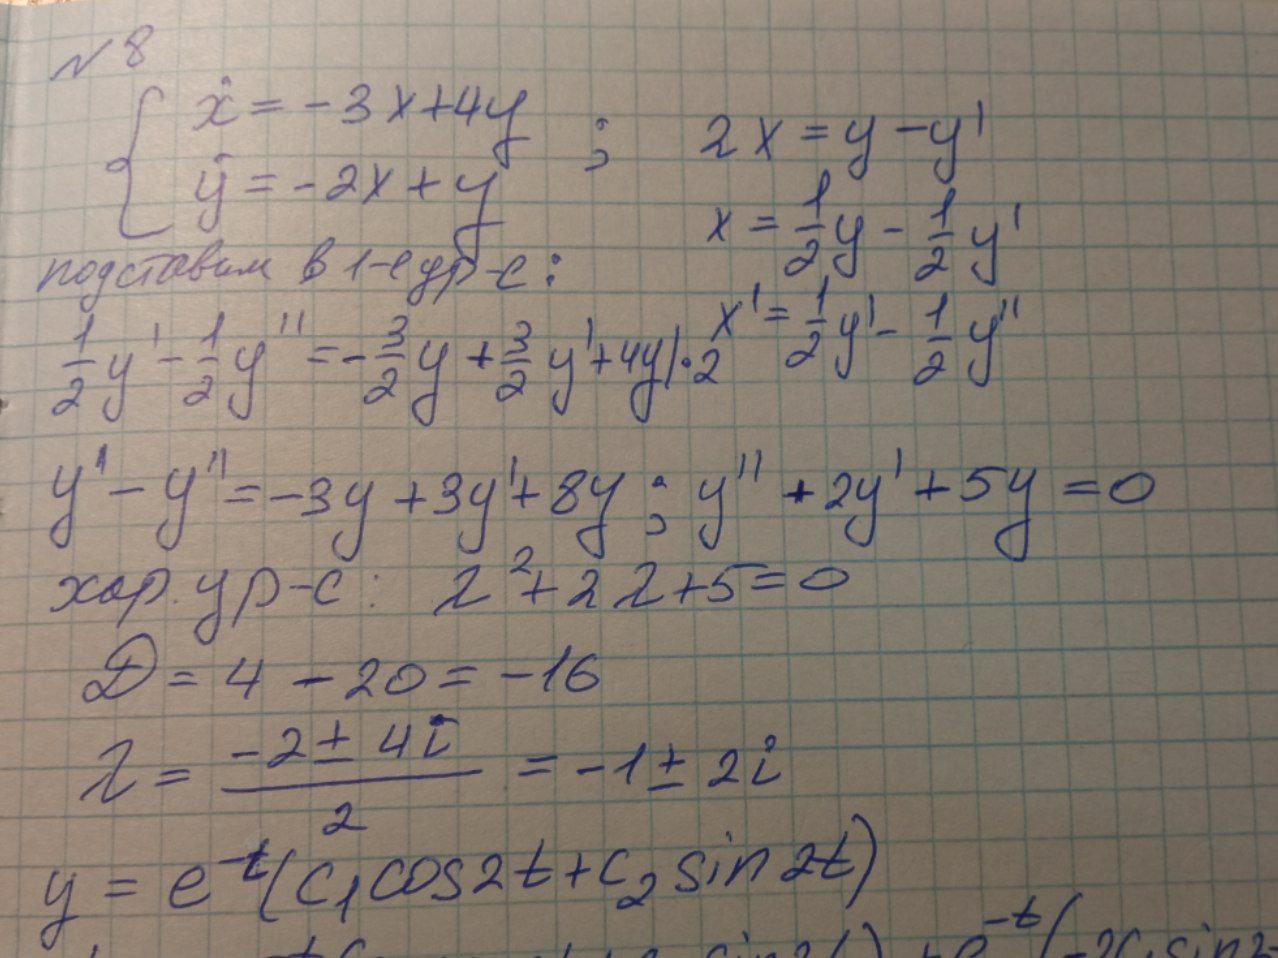 № 8
{ ẋ = -3x+4y ; 2x = y - y'
ẏ = -2x + y
x = 1/2 y - 1/2 y'
подставим в 1-е ур-е:
x' = 1/2 y' - 1/2 y''
1/2 y' - 1/2 y'' = -3/2 y + 3/2 y' + 4y |·2
y' - y'' = -3y + 3y' + 8y ; y'' + 2y' + 5y = 0
хар. ур-е: λ² + 2λ + 5 = 0
D = 4 - 20 = -16
λ = (-2 ± 4i)/2 = -1 ± 2i
y = e^{-t}(C₁cos2t + C₂sin2t)
+ e^{-t}(-2C₁sin2